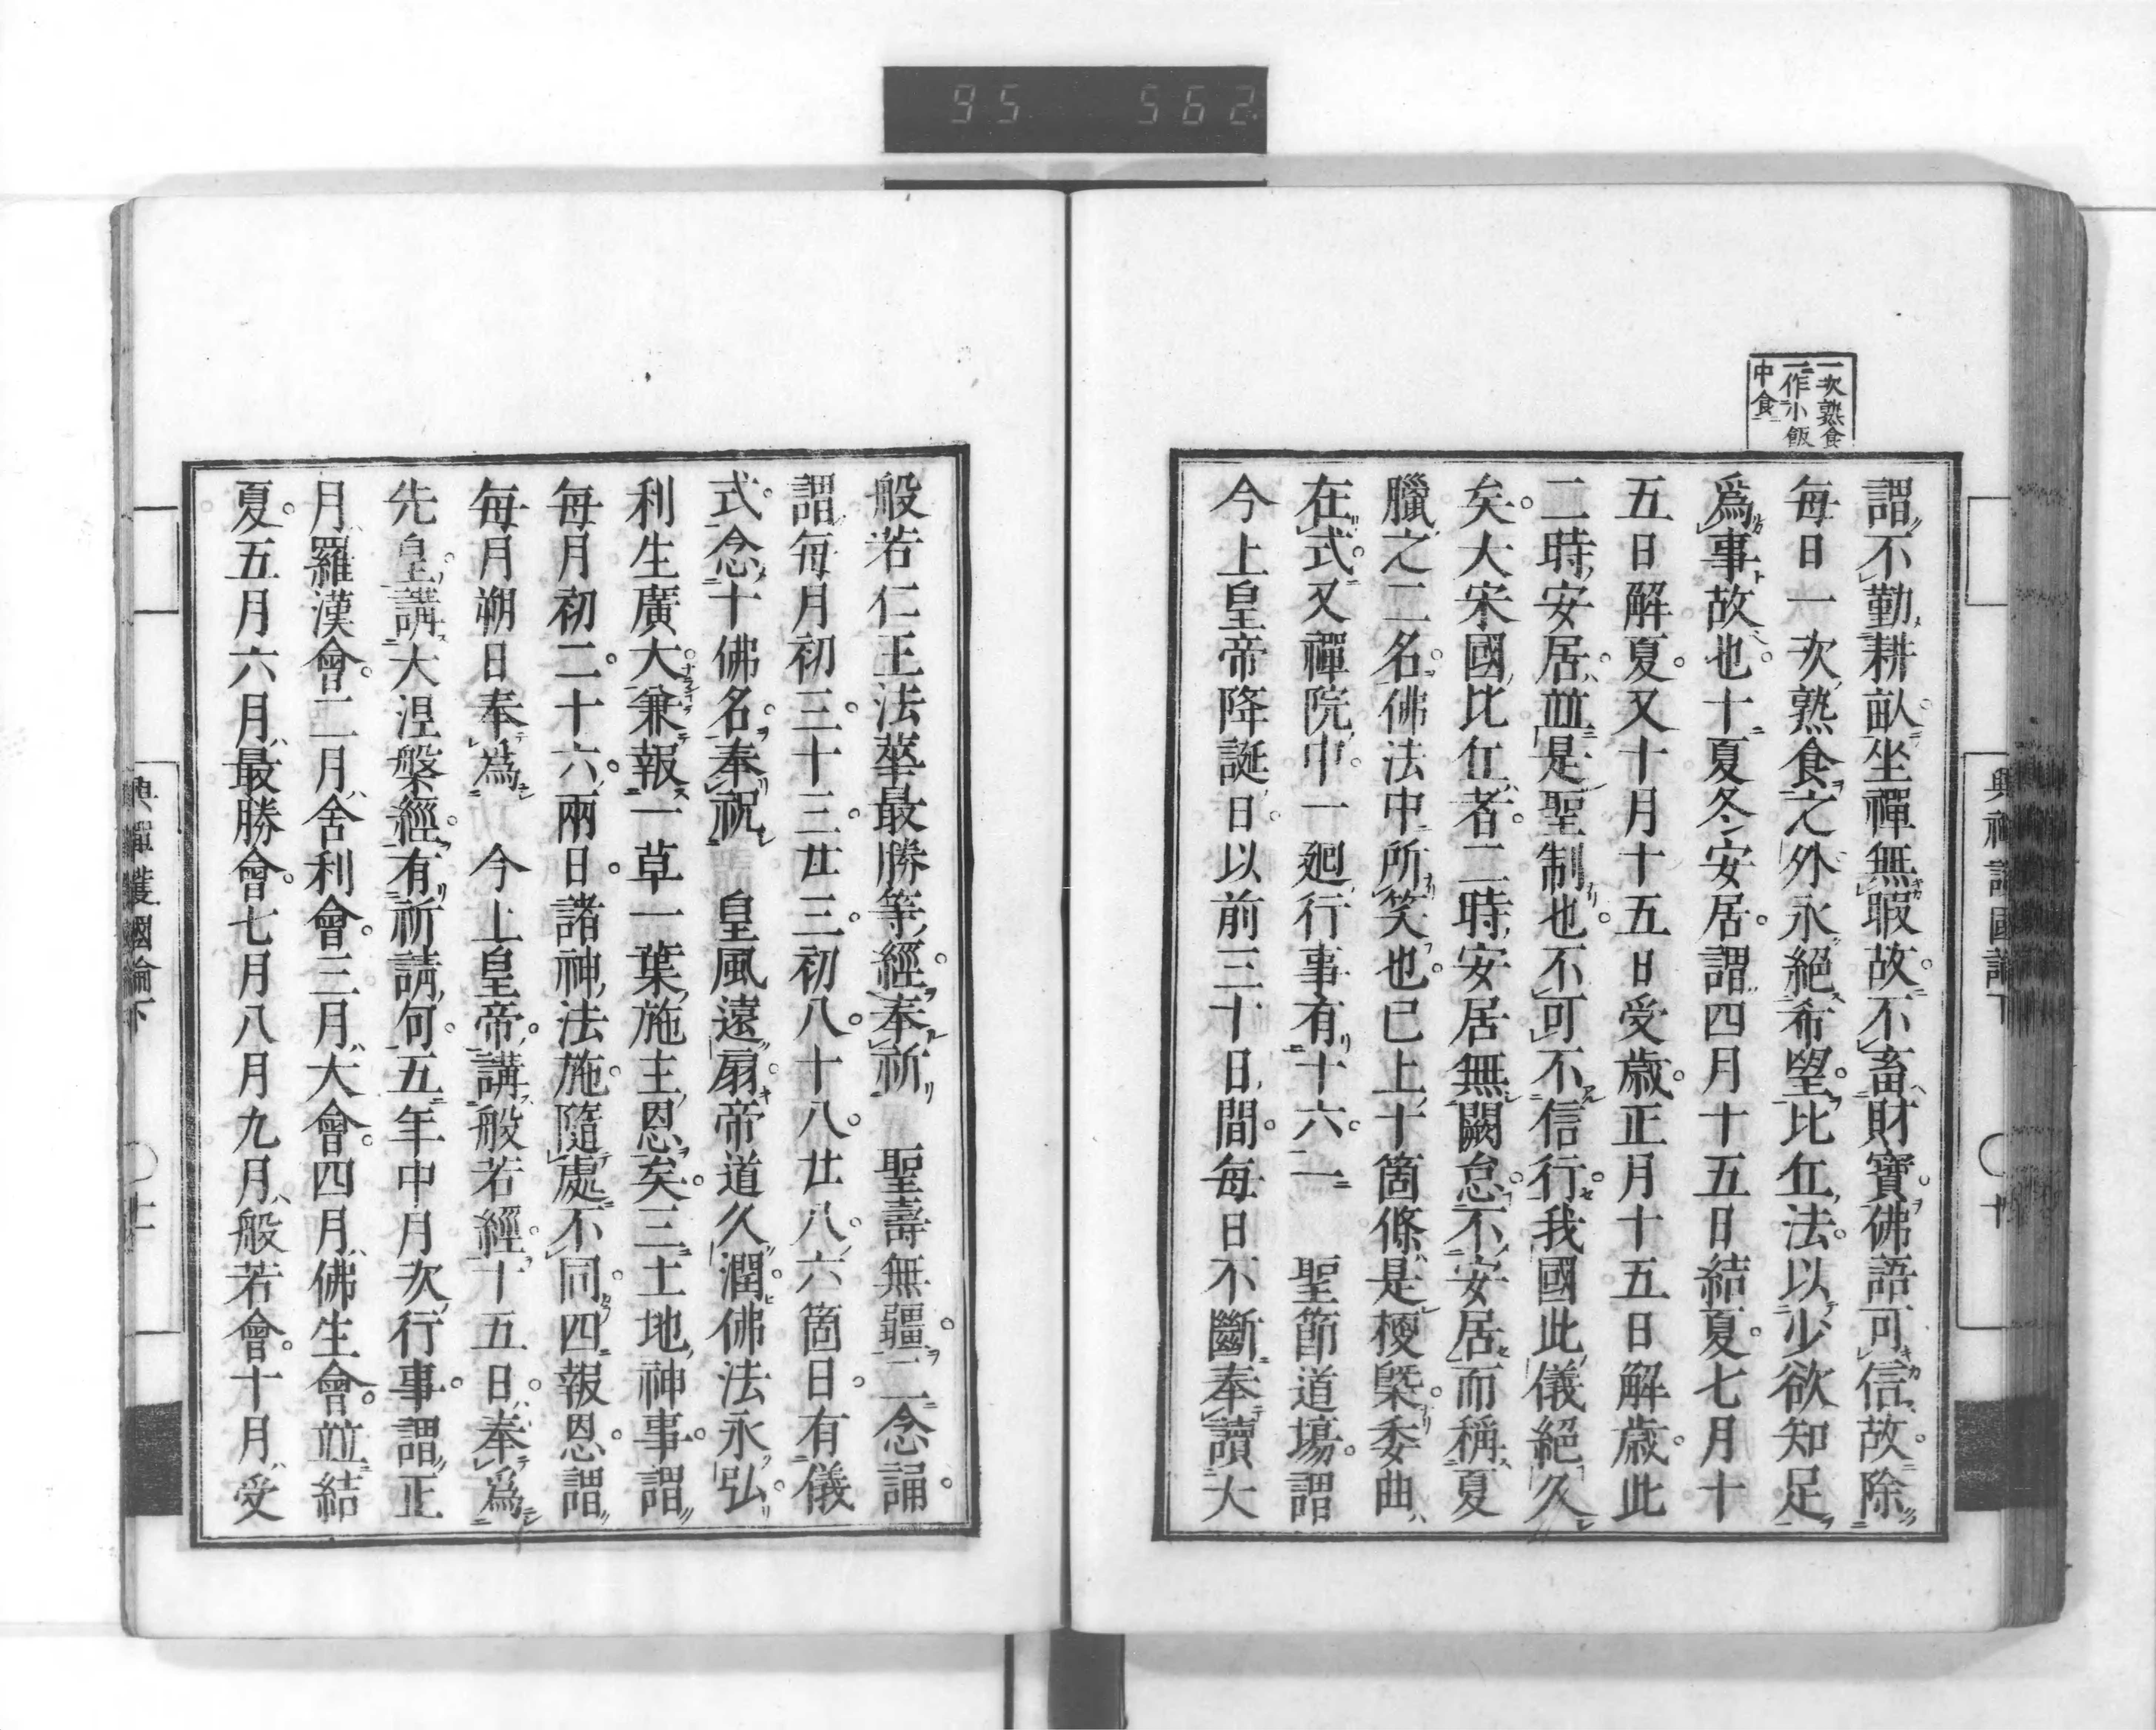 95 562
一次熟食
一作小飯
中食
謂不勤耕畝坐禪無暇故不畜財寶佛語可信故除
每日一次熟食之外永絕希望比丘法以少欲知足
爲事故也十夏冬安居謂四月十五日結夏七月十
五日解夏又十月十五日受歲正月十五日解歲此
二時安居並是聖制也不可不信行我國此儀絕久
矣大宋國比丘者二時安居無闕怠不安居而稱夏
臘之二名佛法中所笑也已上十箇條是梗槩委曲
在式又禪院中一廻行事有十六一　聖節道場謂
今上皇帝降誕日以前三十日間每日不斷奉讀大
興禪護國論下
十
般若仁王法華最勝等經奉祈　聖壽無疆二念誦
謂每月初三十三廿三初八十八廿八六箇日有儀
式念十佛名奉祝　皇風遠扇帝道久潤佛法永弘
利生廣大兼報一草一葉施主恩矣三土地神事謂
每月初二十六兩日諸神法施隨處不同四報恩謂
每月朔日奉爲　今上皇帝講般若經十五日奉爲
先皇講大涅槃經有祈請句五年中月次行事謂正
月羅漢會二月舍利會三月大會四月佛生會並結
夏五月六月最勝會七月八月九月般若會十月受
興禪護國論下
十一